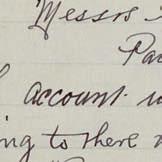 Messrs
Pa
account
ing to there